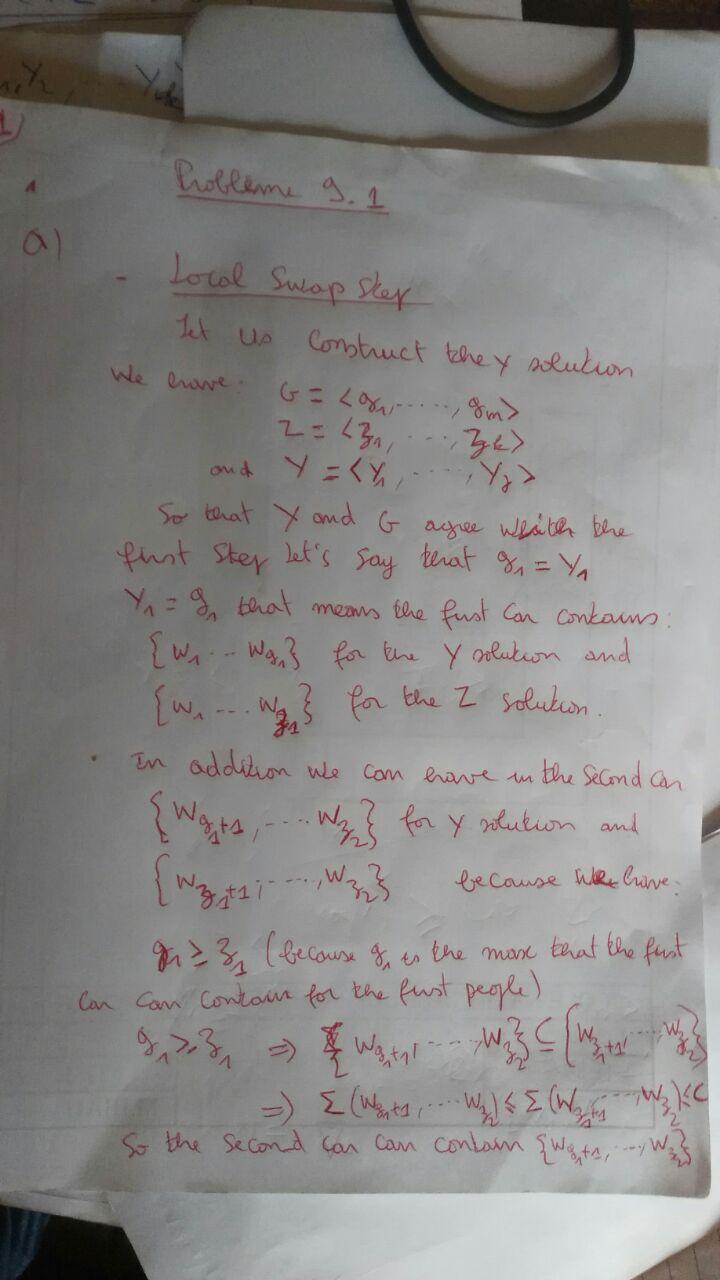 Y2, ... Yk
1
Probleme 9.1
a)
- Local Swap Step
Let us construct the Y solution
We have: G = <g1, ......, gm>
Z = <z1, ..., zk>
and Y = <Y1, ....., Yz>
So that Y and G agree with the
first step let's say that g1 = Y1
Y1 = g1 that means the first car contains:
{W1 ... Wg1} for the Y solution and
{W1 ... Wz1} for the Z solution.
. In addition we can have in the second car
{Wg1+1, .... Wz2} for Y solution and
{Wz1+1, ...., Wz2} because we have:
g1 ≥ z1 (because g1 is the max that the first
car can contain for the first people)
g1 ≥ z1 ⇒ {Wg1+1, ....., Wz2} ⊆ {Wz1+1, ...., Wz2}
⇒ Σ (Wg1+1, .... Wz2) ≤ Σ (Wz1+1, ...., Wz2) ≤ C
So the second car can contain {Wg1+1, ..., Wz2}